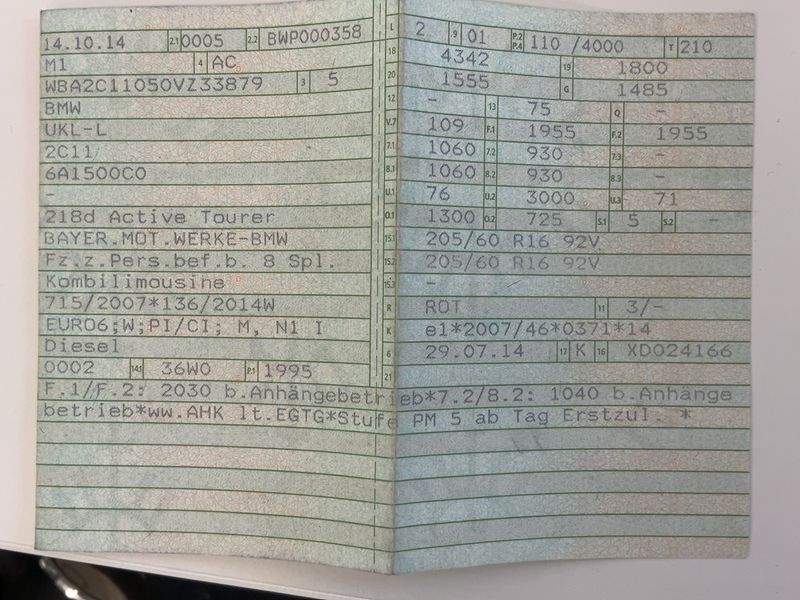 14.10.14 2.1 0005 2.2 BWP000358
M1 4 AC
WBA2C11050VZ33879 3 5
BMW
UKL-L
2C11
6A1500C0
-
218d Active Tourer
BAYER.MOT.WERKE-BMW
Fz.z.Pers.bef.b. 8 Spl.
Kombilimousine
715/2007*136/2014W
EURO6;W;PI/CI; M, N1 I
Diesel
0002 14.1 36W0 P.1 1995
L 2 .9 01 P.2 P.4 110 /4000 T 210
18 4342 19 1800
20 1555 G 1485
12 - 13 75 Q -
V.7 109 F.1 1955 F.2 1955
7.1 1060 7.2 930 7.3 -
8.1 1060 8.2 930 8.3 -
U.1 76 U.2 3000 U.3 71
O.1 1300 O.2 725 S.1 5 S.2 -
15.1 205/60 R16 92V
15.2 205/60 R16 92V
15.3 -
R ROT 11 3/-
K e1*2007/46*0371*14
6 29.07.14 17 K 16 XD024166
21
F.1/F.2: 2030 b.Anhängebetrieb*7.2/8.2: 1040 b.Anhänge
betrieb*ww.AHK lt.EGTG*Stufe PM 5 ab Tag Erstzul. *